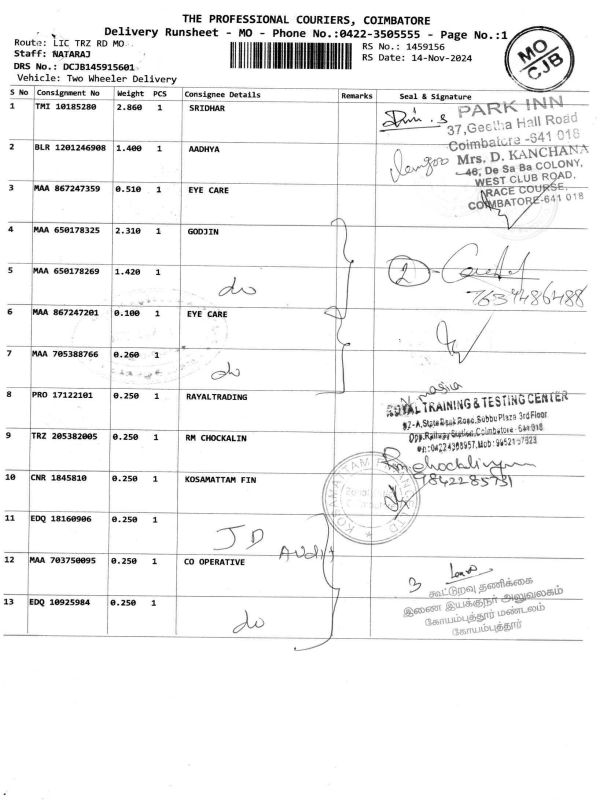 THE PROFESSIONAL COURIERS, COIMBATORE
Delivery Runsheet - MO - Phone No.:0422-3505555 - Page No.:1
Route: LIC TRZ RD MO
Staff: NATARAJ
DRS No.: DCJB145915601
Vehicle: Two Wheeler Delivery
RS No.: 1459156
RS Date: 14-Nov-2024
MO
CJB
S No Consignment No Weight PCS Consignee Details Remarks Seal & Signature
1 TMI 10185280 2.860 1 SRIDHAR
PARK INN
37,Geetha Hall Road
Coimbatore -641 018
2 BLR 1201246908 1.400 1 AADHYA
Mrs. D. KANCHANA
46, De Sa Ba COLONY,
WEST CLUB ROAD,
RACE COURSE,
COIMBATORE-641 018
3 MAA 867247359 0.510 1 EYE CARE
4 MAA 650178325 2.310 1 GODJIN
5 MAA 650178269 1.420 1 do
2
7634486488
6 MAA 867247201 0.100 1 EYE CARE
7 MAA 705388766 0.260 1 do
8 PRO 17122101 0.250 1 RAYALTRADING
ROYAL TRAINING & TESTING CENTER
92-A, State Bank Road, Subbu Plaza 3rd Floor
Opp.Railway Station, Coimbatore - 641 018
9 TRZ 205382005 0.250 1 RM CHOCKALIN
Rm chockalingam
9842285731
10 CNR 1845810 0.250 1 KOSAMATTAM FIN
KOSAMATTAM FINANCE LTD
11 EDQ 18160906 0.250 1 JD Audit
12 MAA 703750095 0.250 1 CO OPERATIVE
3
கூட்டுறவு தணிக்கை
இணை இயக்குநர் அலுவலகம்
கோயம்புத்தூர் மண்டலம்
கோயம்புத்தூர்
13 EDQ 10925984 0.250 1 do